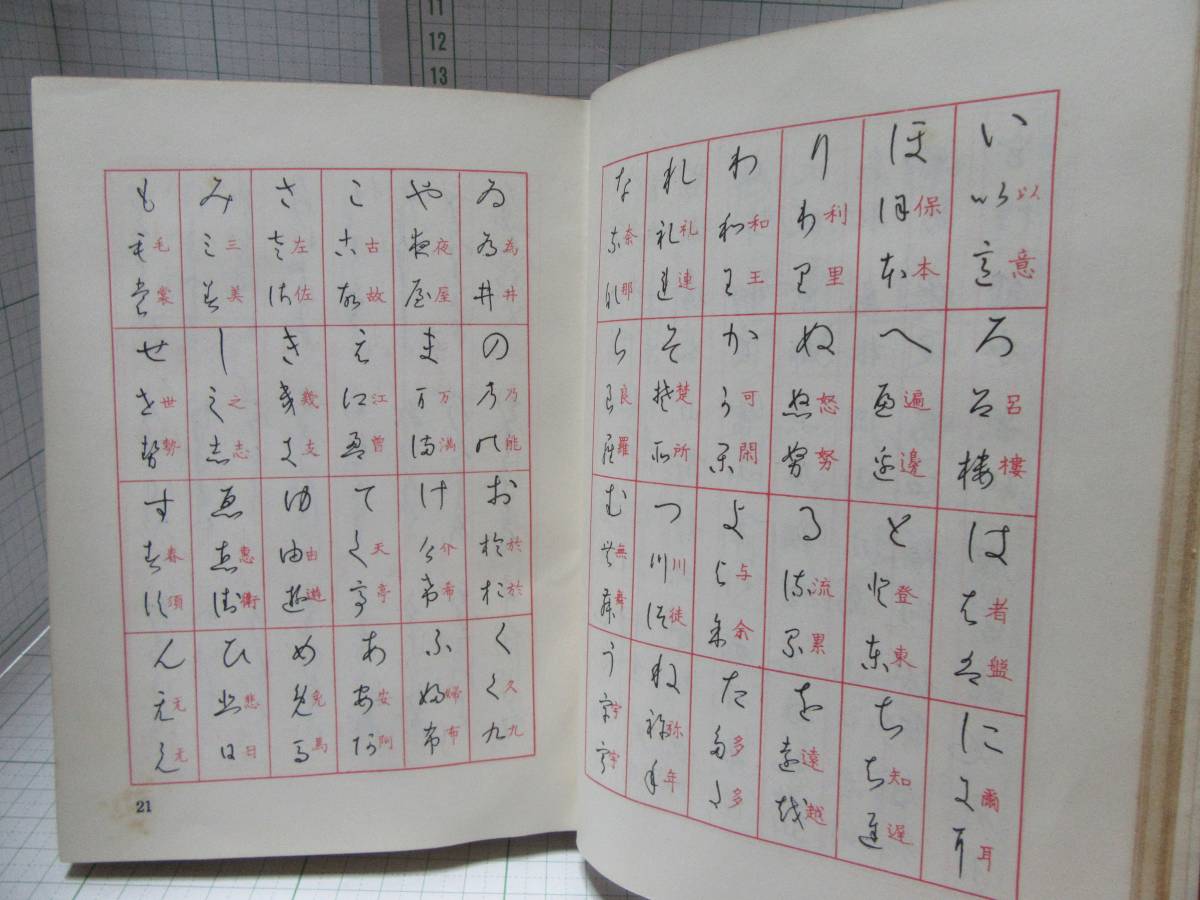 11
12
13
い
以
意
ろ
呂
樓
は
者
盤
に
爾
耳
ほ
保
本
へ
遍
邊
と
登
東
ち
知
遅
り
利
里
ぬ
怒
努
る
流
累
を
遠
越
わ
和
王
か
可
閑
よ
与
余
た
多
多
れ
礼
連
そ
楚
所
つ
川
徒
ね
弥
年
な
奈
那
ら
良
羅
む
無
舞
う
宇
宇
ゐ
為
井
の
乃
能
お
於
於
く
久
九
や
夜
屋
ま
万
満
け
介
希
ふ
婦
布
こ
古
故
え
江
て
天
亭
あ
安
阿
さ
左
佐
き
幾
支
ゆ
由
遊
め
免
馬
み
三
美
し
之
志
ゑ
惠
衛
ひ
悲
日
も
毛
裳
せ
世
勢
す
春
須
ん
无
元
21